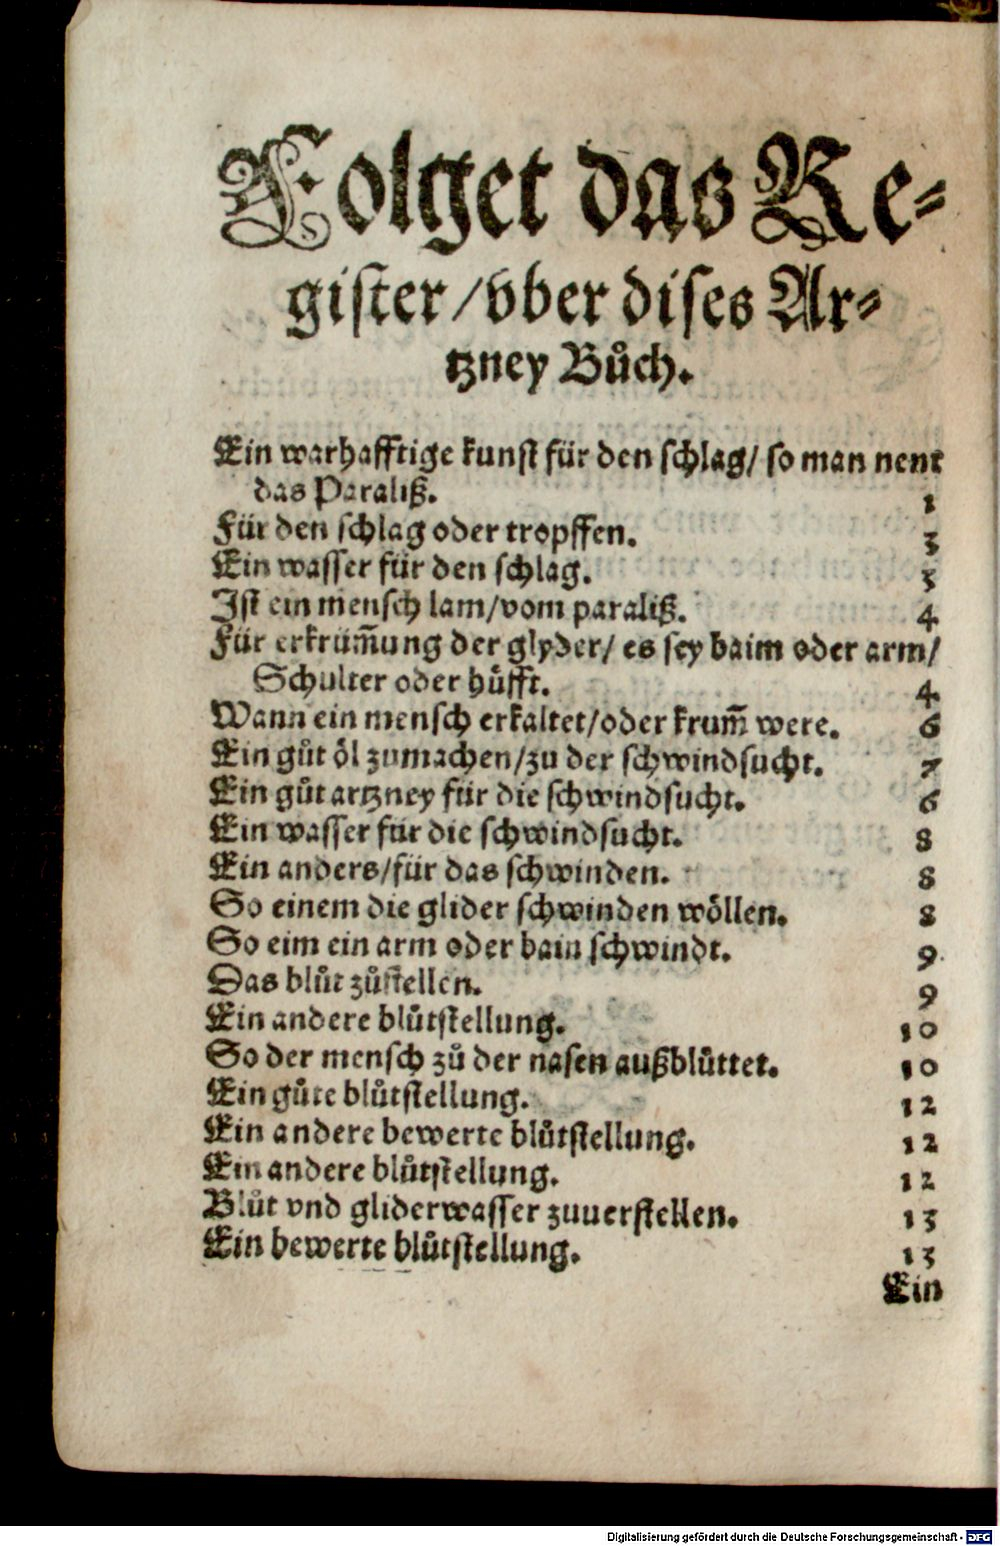 Folget das Re-
gister/vber dises Ar-
tzney Bůch.
Ein warhafftige kunst für den schlag/ so man nent
das Paraliß. 1
Für den schlag oder tropffen. 3
Ein wasser für den schlag. 3
Ist ein mensch lam/vom paraliß. 4
Für erkrüm̃ung der glyder/ es sey baim oder arm/
Schulter oder hüfft. 4
Wann ein mensch erkaltet/oder krum̃ were. 6
Ein gůt öl zumachen/zu der schwindsucht. 7
Ein gůt artzney für die schwindsucht. 6
Ein wasser für die schwindsucht. 8
Ein anders/für das schwinden. 8
So einem die glider schwinden wöllen. 8
So eim ein arm oder bain schwindt. 9
Das blůt zůstellen. 9
Ein andere blůtstellung. 10
So der mensch zů der nasen außblůttet. 10
Ein gůte blůtstellung. 12
Ein andere bewerte blůtstellung. 12
Ein andere blůtstellung. 12
Blůt vnd gliderwasser zuuerstellen. 13
Ein bewerte blůtstellung. 13
Ein
Digitalisierung gefördert durch die Deutsche Forschungsgemeinschaft - DFG